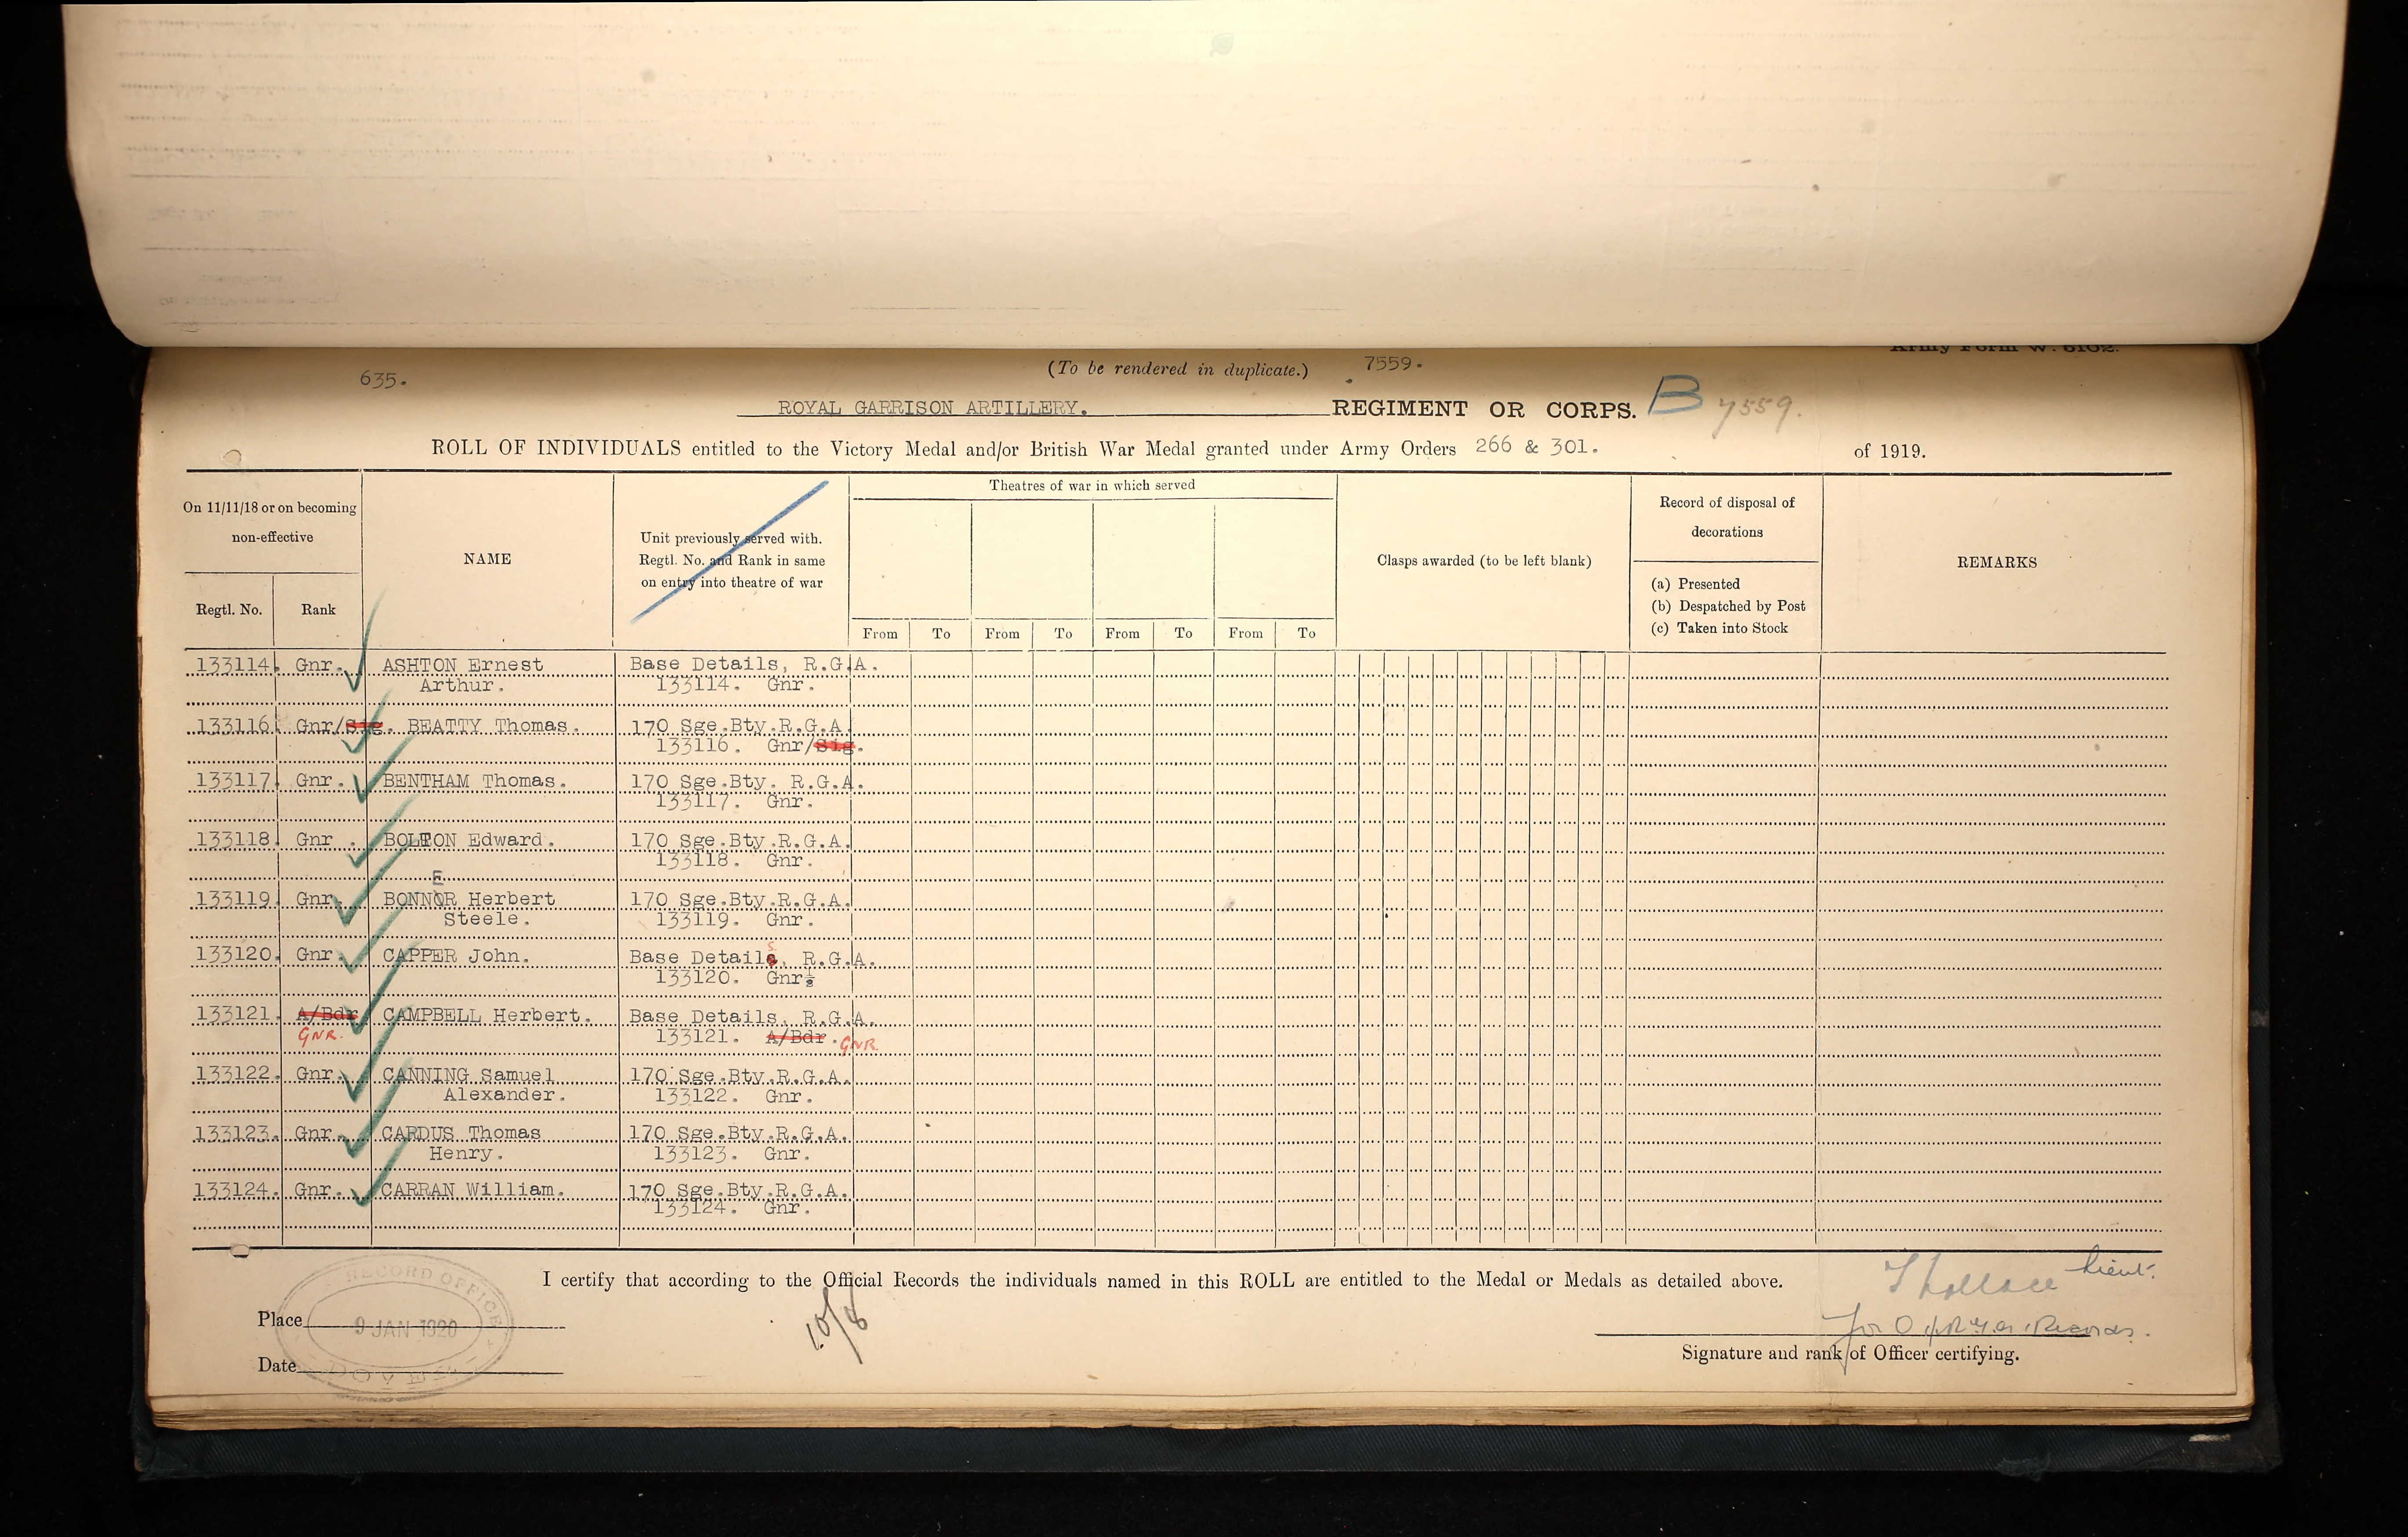 Army Form W. 5102.
(To be rendered in duplicate.) 7559.
635.
ROYAL GARRISON ARTILLERY. REGIMENT OR CORPS. B 7559.
ROLL OF INDIVIDUALS entitled to the Victory Medal and/or British War Medal granted under Army Orders 266 & 301. of 1919.
On 11/11/18 or on becoming non-effective
Regtl. No. Rank
NAME
Unit previously served with.
Regtl. No. and Rank in same
on entry into theatre of war
Theatres of war in which served
From To From To From To From To
Clasps awarded (to be left blank)
Record of disposal of
decorations
(a) Presented
(b) Despatched by Post
(c) Taken into Stock
REMARKS
133114. Gnr. ASHTON Ernest Base Details, R.G.A.
Arthur. 133114. Gnr.
133116. Gnr/Sig. BEATTY Thomas. 170 Sge.Bty.R.G.A.
133116. Gnr/Sig.
133117. Gnr. BENTHAM Thomas. 170 Sge.Bty. R.G.A.
133117. Gnr.
133118. Gnr. BOLTON Edward. 170 Sge.Bty.R.G.A.
133118. Gnr.
E
133119. Gnr. BONNOR Herbert 170 Sge.Bty.R.G.A.
Steele. 133119. Gnr.
133120. Gnr. CAPPER John. Base Details, R.G.A.
133120. Gnr.
133121. A/Bdr CAMPBELL Herbert. Base Details, R.G.A.
GNR. 133121. A/Bdr. GNR.
133122. Gnr. CANNING Samuel 170 Sge.Bty.R.G.A.
Alexander. 133122. Gnr.
133123. Gnr. CARDUS Thomas 170 Sge.Bty.R.G.A.
Henry. 133123. Gnr.
133124. Gnr. CARRAN William. 170 Sge.Bty.R.G.A.
133124. Gnr.
I certify that according to the Official Records the individuals named in this ROLL are entitled to the Medal or Medals as detailed above.
Lieut.
for Records.
Place
RECORD OFFICE
9 JAN 1920
DOVER
Date
Signature and rank of Officer certifying.